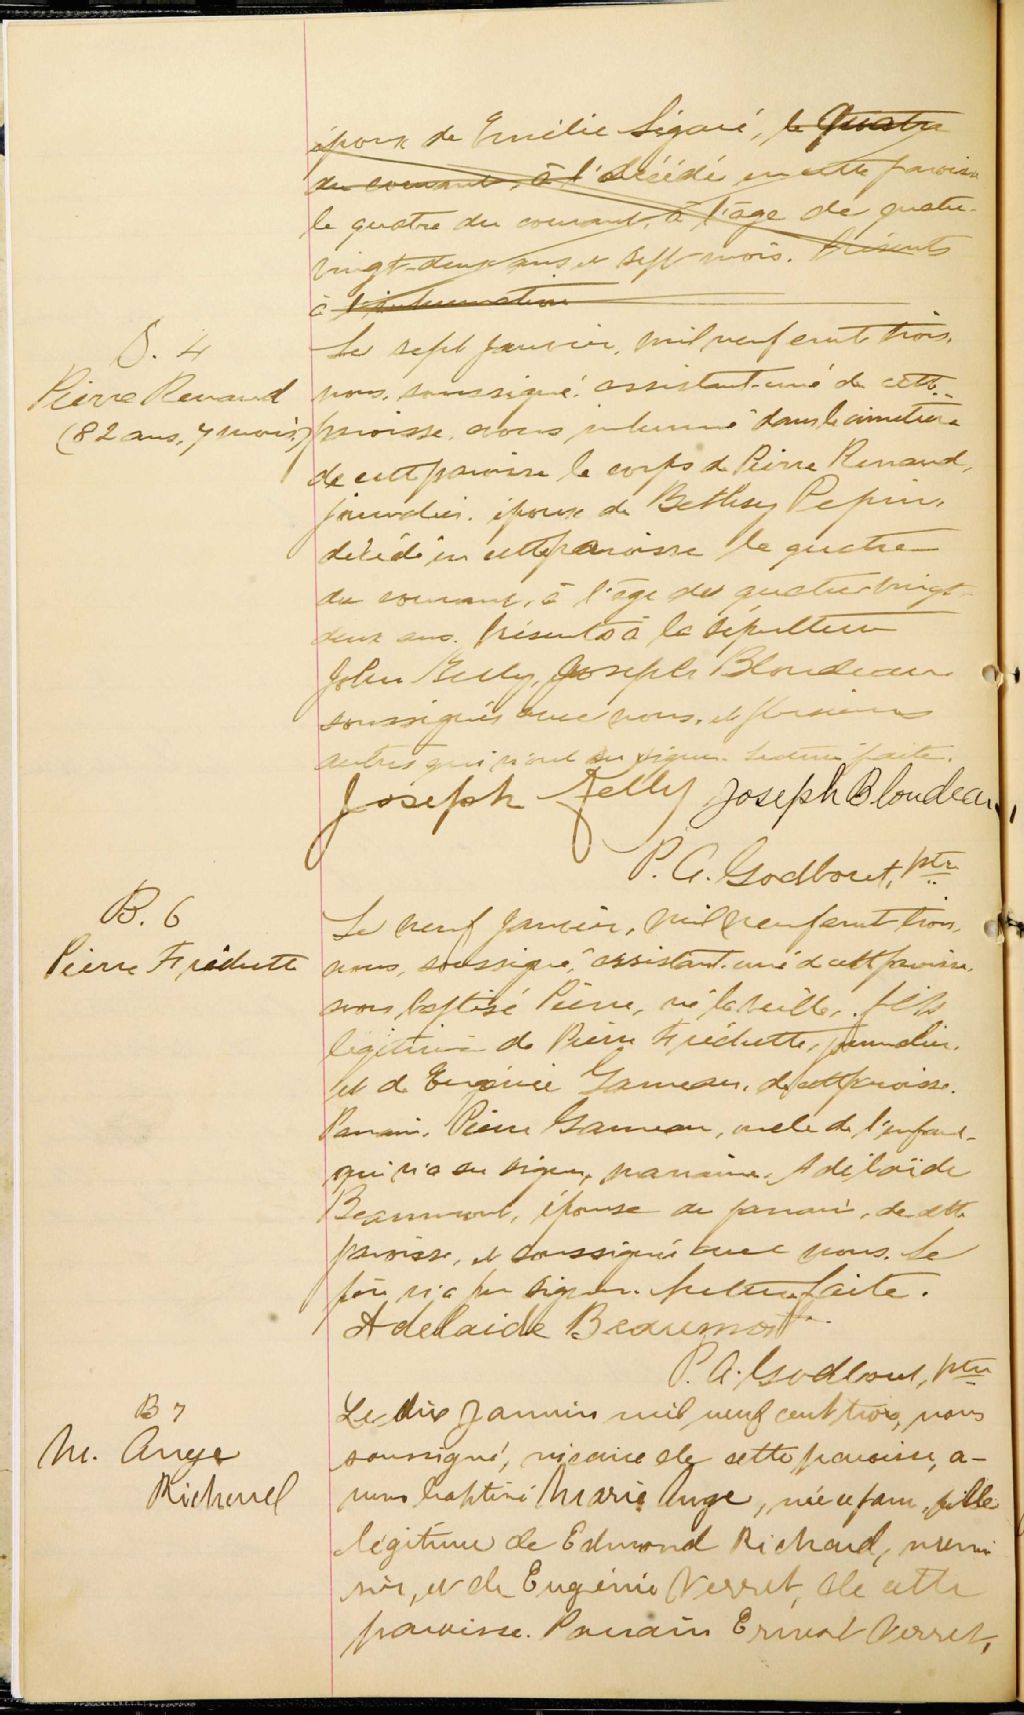 époux de Emélie Sigouré, le Quatre
du courant, à l'décédé en cette paroisse
le quatre du courant, à l'âge de quatre-
vingt-deux ans et sept mois. Présents
à l'inhumation
S. 4
Pierre Renaud
(82 ans, 7 mois)
Le sept janvier, mil neuf cent trois,
nous, soussigné, assistant-curé de cette
paroisse, avons inhumé dans le cimetière
de cette paroisse le corps de Pierre Renaud,
journalier, époux de Bethsey Pepin,
décédé en cette paroisse le quatre
du courant, à l'âge de quatre-vingt-
deux ans. Présents à la sépulture
John Kelly, Joseph Blondeau
soussignés avec nous, et plusieurs
autres qui n'ont su signer. Lecture faite.
Joseph Kelly Joseph Blondeau
P. A. Godbout, ptre
B. 6
Pierre Fréchette
Le neuf janvier, mil neuf cent trois,
nous, soussigné, assistant-curé de cette paroisse,
avons baptisé Pierre, né la veille, fils
légitime de Pierre Fréchette, journalier,
et de Eugénie Garneau, de cette paroisse.
Parrain, Pierre Garneau, oncle de l'enfant,
qui n'a su signer, marraine, Adélaïde
Beaumont, épouse du parrain, de cette
paroisse, et soussignée avec nous. Le
père n'a pu signer. Lecture faite.
Adelaide Beaumont
P. A. Godbout, ptre
B 7
M. Ange
Richard
Le dix Janvier mil neuf cent trois, nous
soussigné, vicaire de cette paroisse, a-
vons baptisé Marie Ange, née ce jour, fille
légitime de Edmond Richard, menui
sier, et de Eugénie Verret, de cette
paroisse. Parrain Ernest Verret,